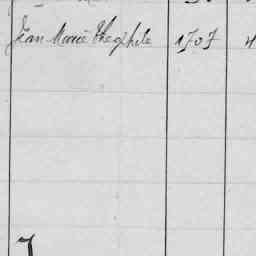 Jean Marie Theophile 1707 4